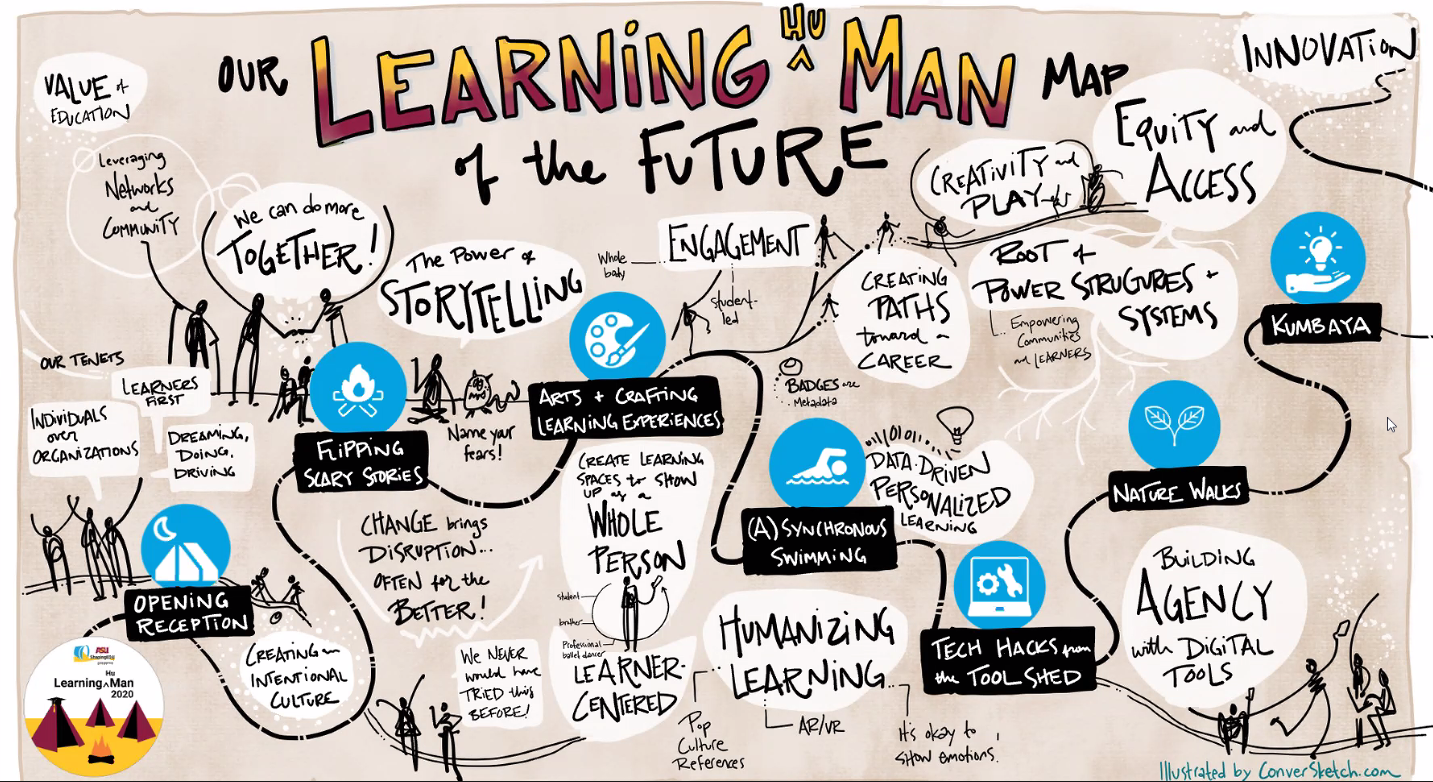 OUR LEARNING HU ^ MAN MAP
of the FUTURE
VALUE of
EDUCATION
INNOVATION
Leveraging
NETWORKS
and
COMMUNITY
We can do more
TOGETHER!
The Power of
STORYTELLING
Whole
body
ENGAGEMENT
student-
led
CREATIVITY and
PLAY
EQUITY and
ACCESS
CREATING
PATHS
toward a
CAREER
ROOT of
POWER STRUGURES +
SYSTEMS
Empowering
Communities
and LEARNERS
KUMBAYA
OUR TENETS
LEARNERS
FIRST
INDIVIDUALS
over
ORGANIZATIONS
DREAMING,
DOING,
DRIVING
FLIPPING
SCARY STORIES
Name your
fears!
ARTS + CRAFTING
LEARNING EXPERIENCES
BADGES are
Metadata
DATA-DRIVEN
PERSONALIZED
LEARNING
NATURE WALKS
OPENING
RECEPTION
CHANGE brings
DISRUPTION...
OFTEN for the
BETTER!
CREATE LEARNING
SPACES to SHOW
UP as a
WHOLE
PERSON
student
brother
Professional
ballet dancer
LEARNER-
CENTERED
(A)SYNCHRONOUS
SWIMMING
TECH HACKS from
the TOOL SHED
BUILDING
AGENCY
with DIGITAL
TOOLS
CREATING an
INTENTIONAL
CULTURE
We NEVER
would have
TRIED this
BEFORE!
HUMANIZING
LEARNING
Pop
Culture
References
AR/VR
It's okay to
SHOW emotions!
ASU
Learning Hu ^ Man
2020
Illustrated by ConverSketch.com